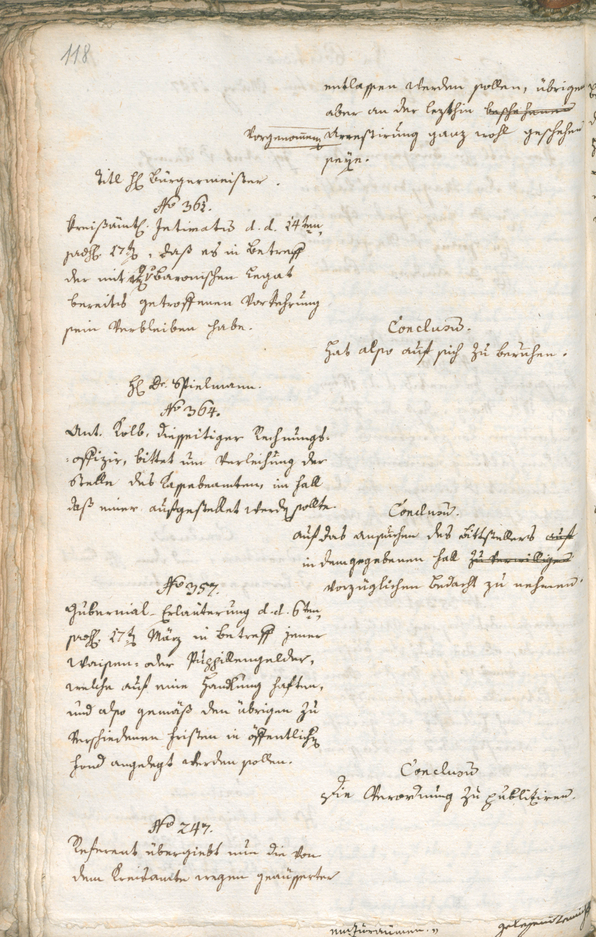 118
entlassen werden sollen, übrigens
aber an der lezthin beschehenen
Vorgenommen Arrestirung ganz wohl geschehen
seye.
Titl H Bürgermeister.
No 361.
Kreißämtl. Intimatis d. d. 14ten,
daß es in Betreff
der mit Baronischen Legat
bereits getroffenen Vorkehrung
sein Verbleiben habe.
Conclusum.
Hat also auf sich zu beruhen.
H Dr. Spielmann.
No 364.
Ant. Kolb, diesseitiger Rechnungs-
offizir, bittet um Verleihung der
Stelle des Kassebeamten, im Fall
daß einer aufgestellet werden sollte.
Conclusum.
auf das ansuchen des Bittstellers auf
in dem gegebenen Fall zu bewilligen
vorzüglichen Bedacht zu nehmen.
No 357.
Gubernial Erläuterung d. d. 6ten,
17 März in Betreff jener
Waisen- oder Pupillengelder,
welche auf eine Handlung haften,
und also gemäß den übrigen zu
verschiedenen Fristen in öffentlichen
Fond angelegt werden sollen.
Conclusum
Die Verordnung zu publiziren.
No 247.
Referent übergiebt nun die von
dem Kreisamte wegen geäusserter
einzuräumen.